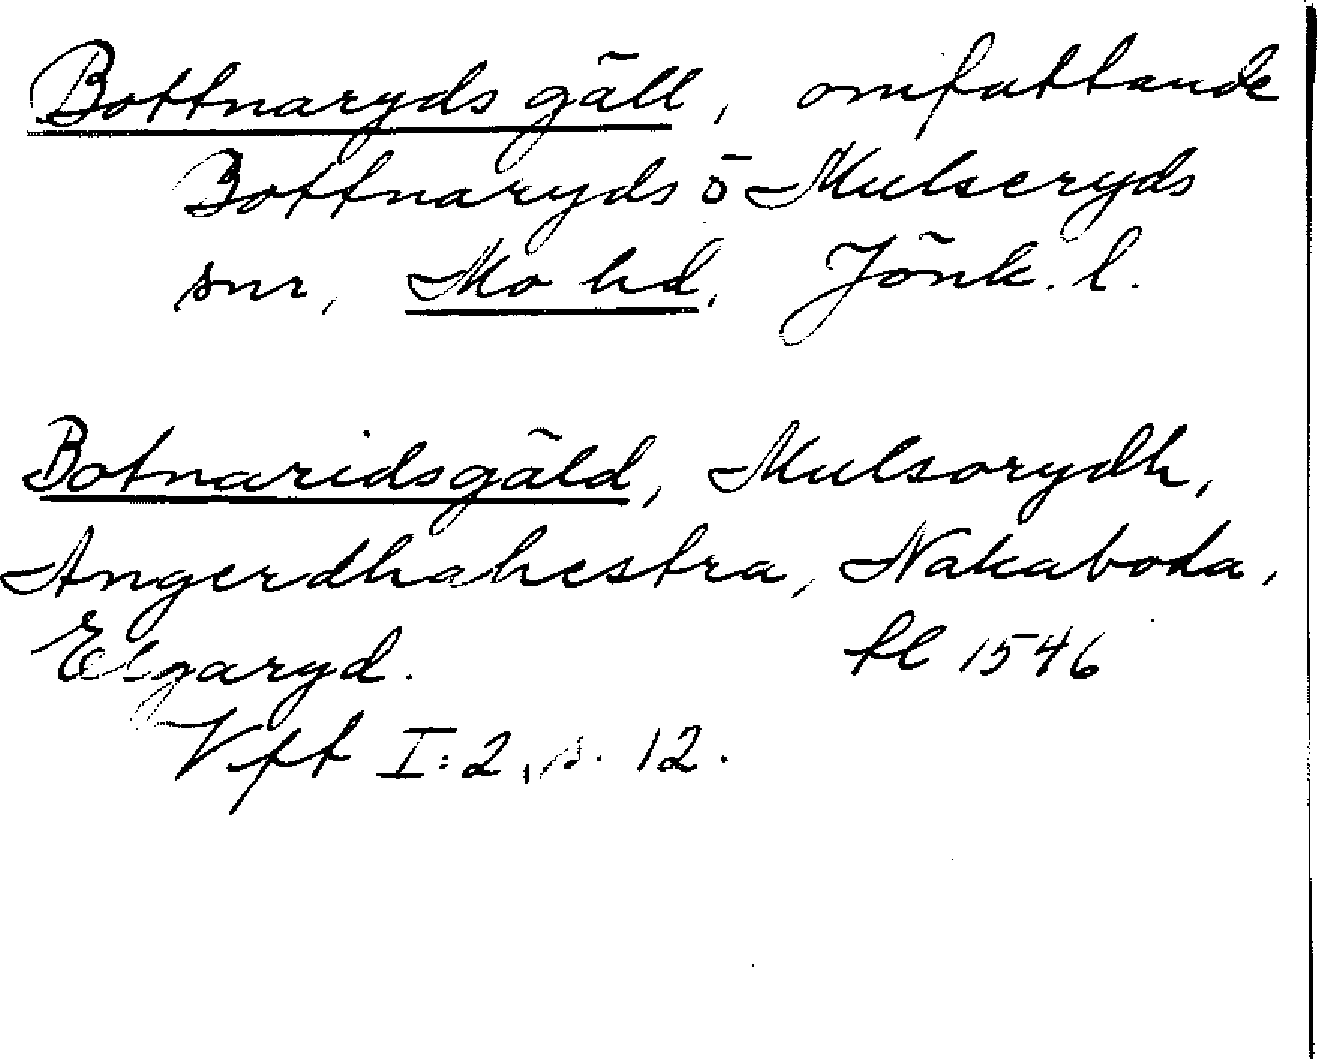 Bottnaryds gäll, omfattande
Bottnaryds o Mulseryds
snr, Mo hd, Jönk. l.
Botnaridsgäld, Mulsorydh,
Angerdhahestra, Nakaboda,
Elgaryd. fl 1546
Vfft I:2, s. 12.